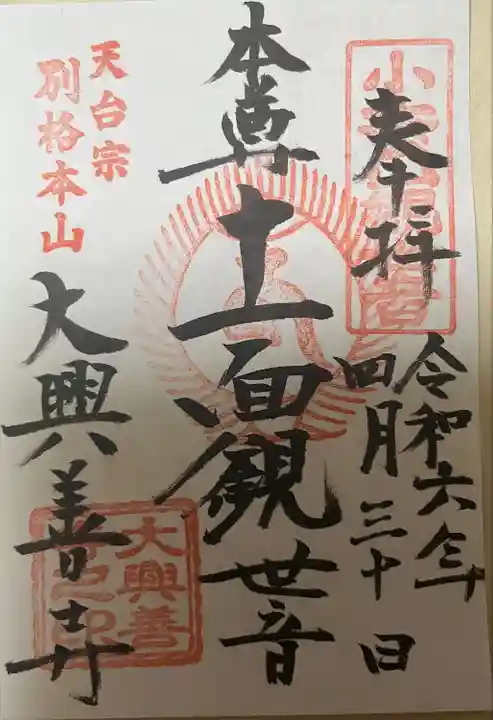 奉拝
令和六年
四月三十日
本尊
十一面観世音
天台宗
別格本山
大興善寺
大興善
寺之印